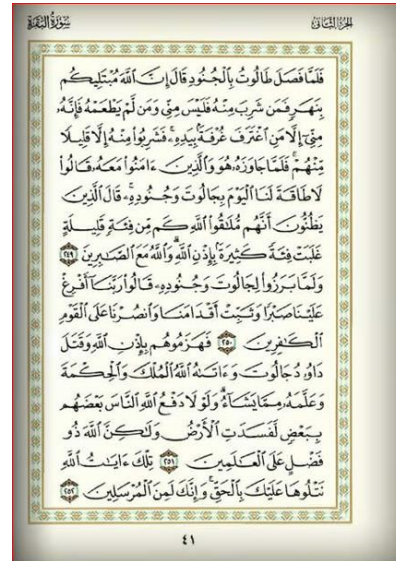 سُورَةُ البَقَرَةِ
الجزء الثاني
فَلَمَّا فَصَلَ طَالُوتُ بِالْجُنُودِ قَالَ إِنَّ اللَّهَ مُبْتَلِيكُم
بِنَهَرٍ فَمَن شَرِبَ مِنْهُ فَلَيْسَ مِنِّي وَمَن لَّمْ يَطْعَمْهُ فَإِنَّهُ
مِنِّي إِلَّا مَنِ اغْتَرَفَ غُرْفَةً بِيَدِهِ فَشَرِبُوا مِنْهُ إِلَّا قَلِيلًا
مِّنْهُمْ فَلَمَّا جَاوَزَهُ هُوَ وَالَّذِينَ ءَامَنُوا مَعَهُ قَالُوا
لَا طَاقَةَ لَنَا الْيَوْمَ بِجَالُوتَ وَجُنُودِهِ قَالَ الَّذِينَ
يَظُنُّونَ أَنَّهُم مُّلَٰقُوا اللَّهِ كَم مِّن فِئَةٍ قَلِيلَةٍ
غَلَبَتْ فِئَةً كَثِيرَةً بِإِذْنِ اللَّهِ وَاللَّهُ مَعَ الصَّٰبِرِينَ ٢٤٩
وَلَمَّا بَرَزُوا لِجَالُوتَ وَجُنُودِهِ قَالُوا رَبَّنَا أَفْرِغْ
عَلَيْنَا صَبْرًا وَثَبِّتْ أَقْدَامَنَا وَانصُرْنَا عَلَى الْقَوْمِ
الْكَٰفِرِينَ ٢٥٠ فَهَزَمُوهُم بِإِذْنِ اللَّهِ وَقَتَلَ
دَاوُدُ جَالُوتَ وَءَاتَىٰهُ اللَّهُ الْمُلْكَ وَالْحِكْمَةَ
وَعَلَّمَهُ مِمَّا يَشَاءُ وَلَوْلَا دَفْعُ اللَّهِ النَّاسَ بَعْضَهُم
بِبَعْضٍ لَّفَسَدَتِ الْأَرْضُ وَلَٰكِنَّ اللَّهَ ذُو
فَضْلٍ عَلَى الْعَٰلَمِينَ ٢٥١ تِلْكَ ءَايَٰتُ اللَّهِ
نَتْلُوهَا عَلَيْكَ بِالْحَقِّ وَإِنَّكَ لَمِنَ الْمُرْسَلِينَ ٢٥٢
٤١